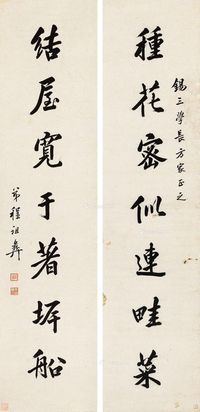 錫三學長方家正之
種花密似連畦菜
結屋寬于著坪船
弟程祖彝